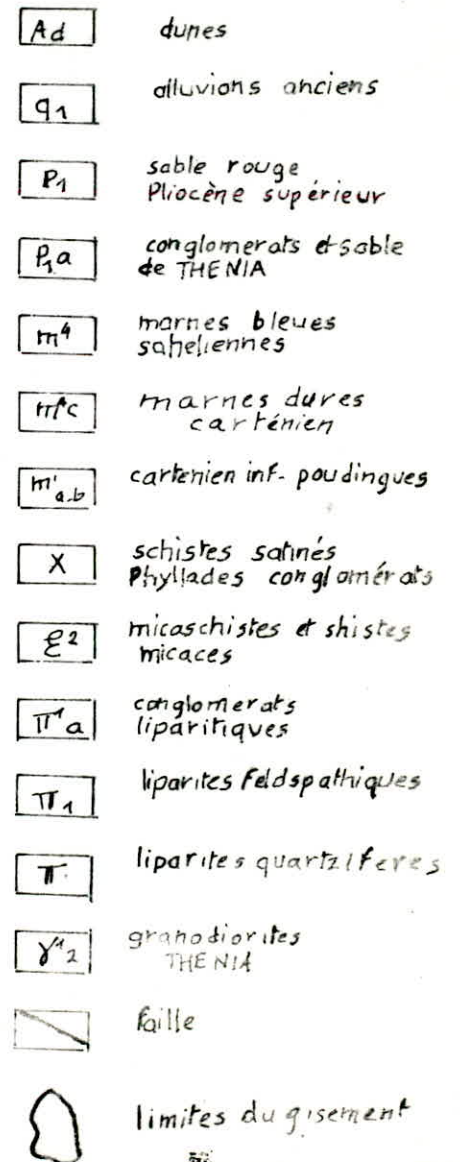 Ad dunes
q1 alluvions anciens
P1 sable rouge
Pliocène supérieur
P1a conglomerats et sable
de THENIA
m4 marnes bleues
saheliennes
marnes dures
carténien
m'a-b cartenien inf- poudingues
X schistes satinés
Phyllades conglomérats
ξ2 micaschistes et shistes
micaces
π1a conglomerats
liparitiques
π1 liparites Feldspathiques
π liparites quartziferes
γ12 granodiorites
THENIA
faille
limites du gisement